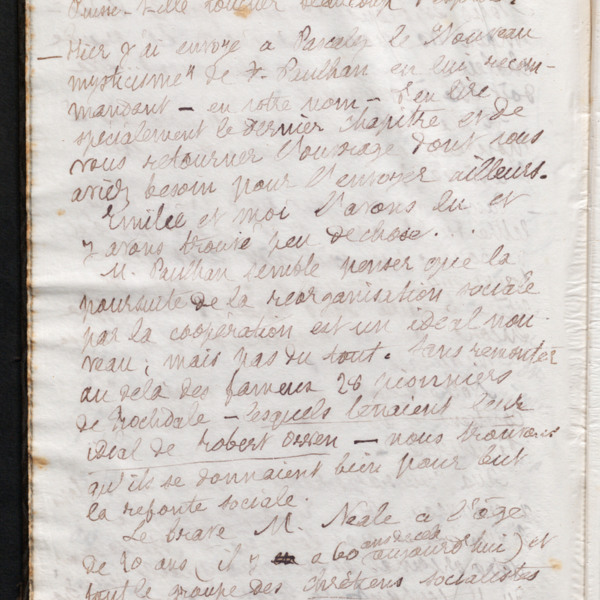 Puisse-t-elle toucher beaucoup
— Hier j'ai envoyé à Pascaly le Nouveau
mysticisme de F. Paulhan en lui recom-
mandant — en votre nom — d'en lire
spécialement le dernier chapitre et de
vous retourner l'ouvrage dont vous
aviez besoin pour l'envoyer ailleurs.
Emilie et moi l'avons lu et
y avons trouvé peu de chose.
M. Paulhan semble penser que la
poursuite de la réorganisation sociale
par la coopération est un idéal nou-
veau ; mais pas du tout. Sans remonter
au delà des fameux 28 pionniers
de Rochdale — lesquels tenaient leur
idéal de Robert Owen — nous trouvons
qu'ils se donnaient bien pour but
la refonte sociale.
Le brave M. Neale a l'âge
de 20 ans (il y a 60 ans de cela aujourd'hui) et
tout le groupe des chrétiens socialistes